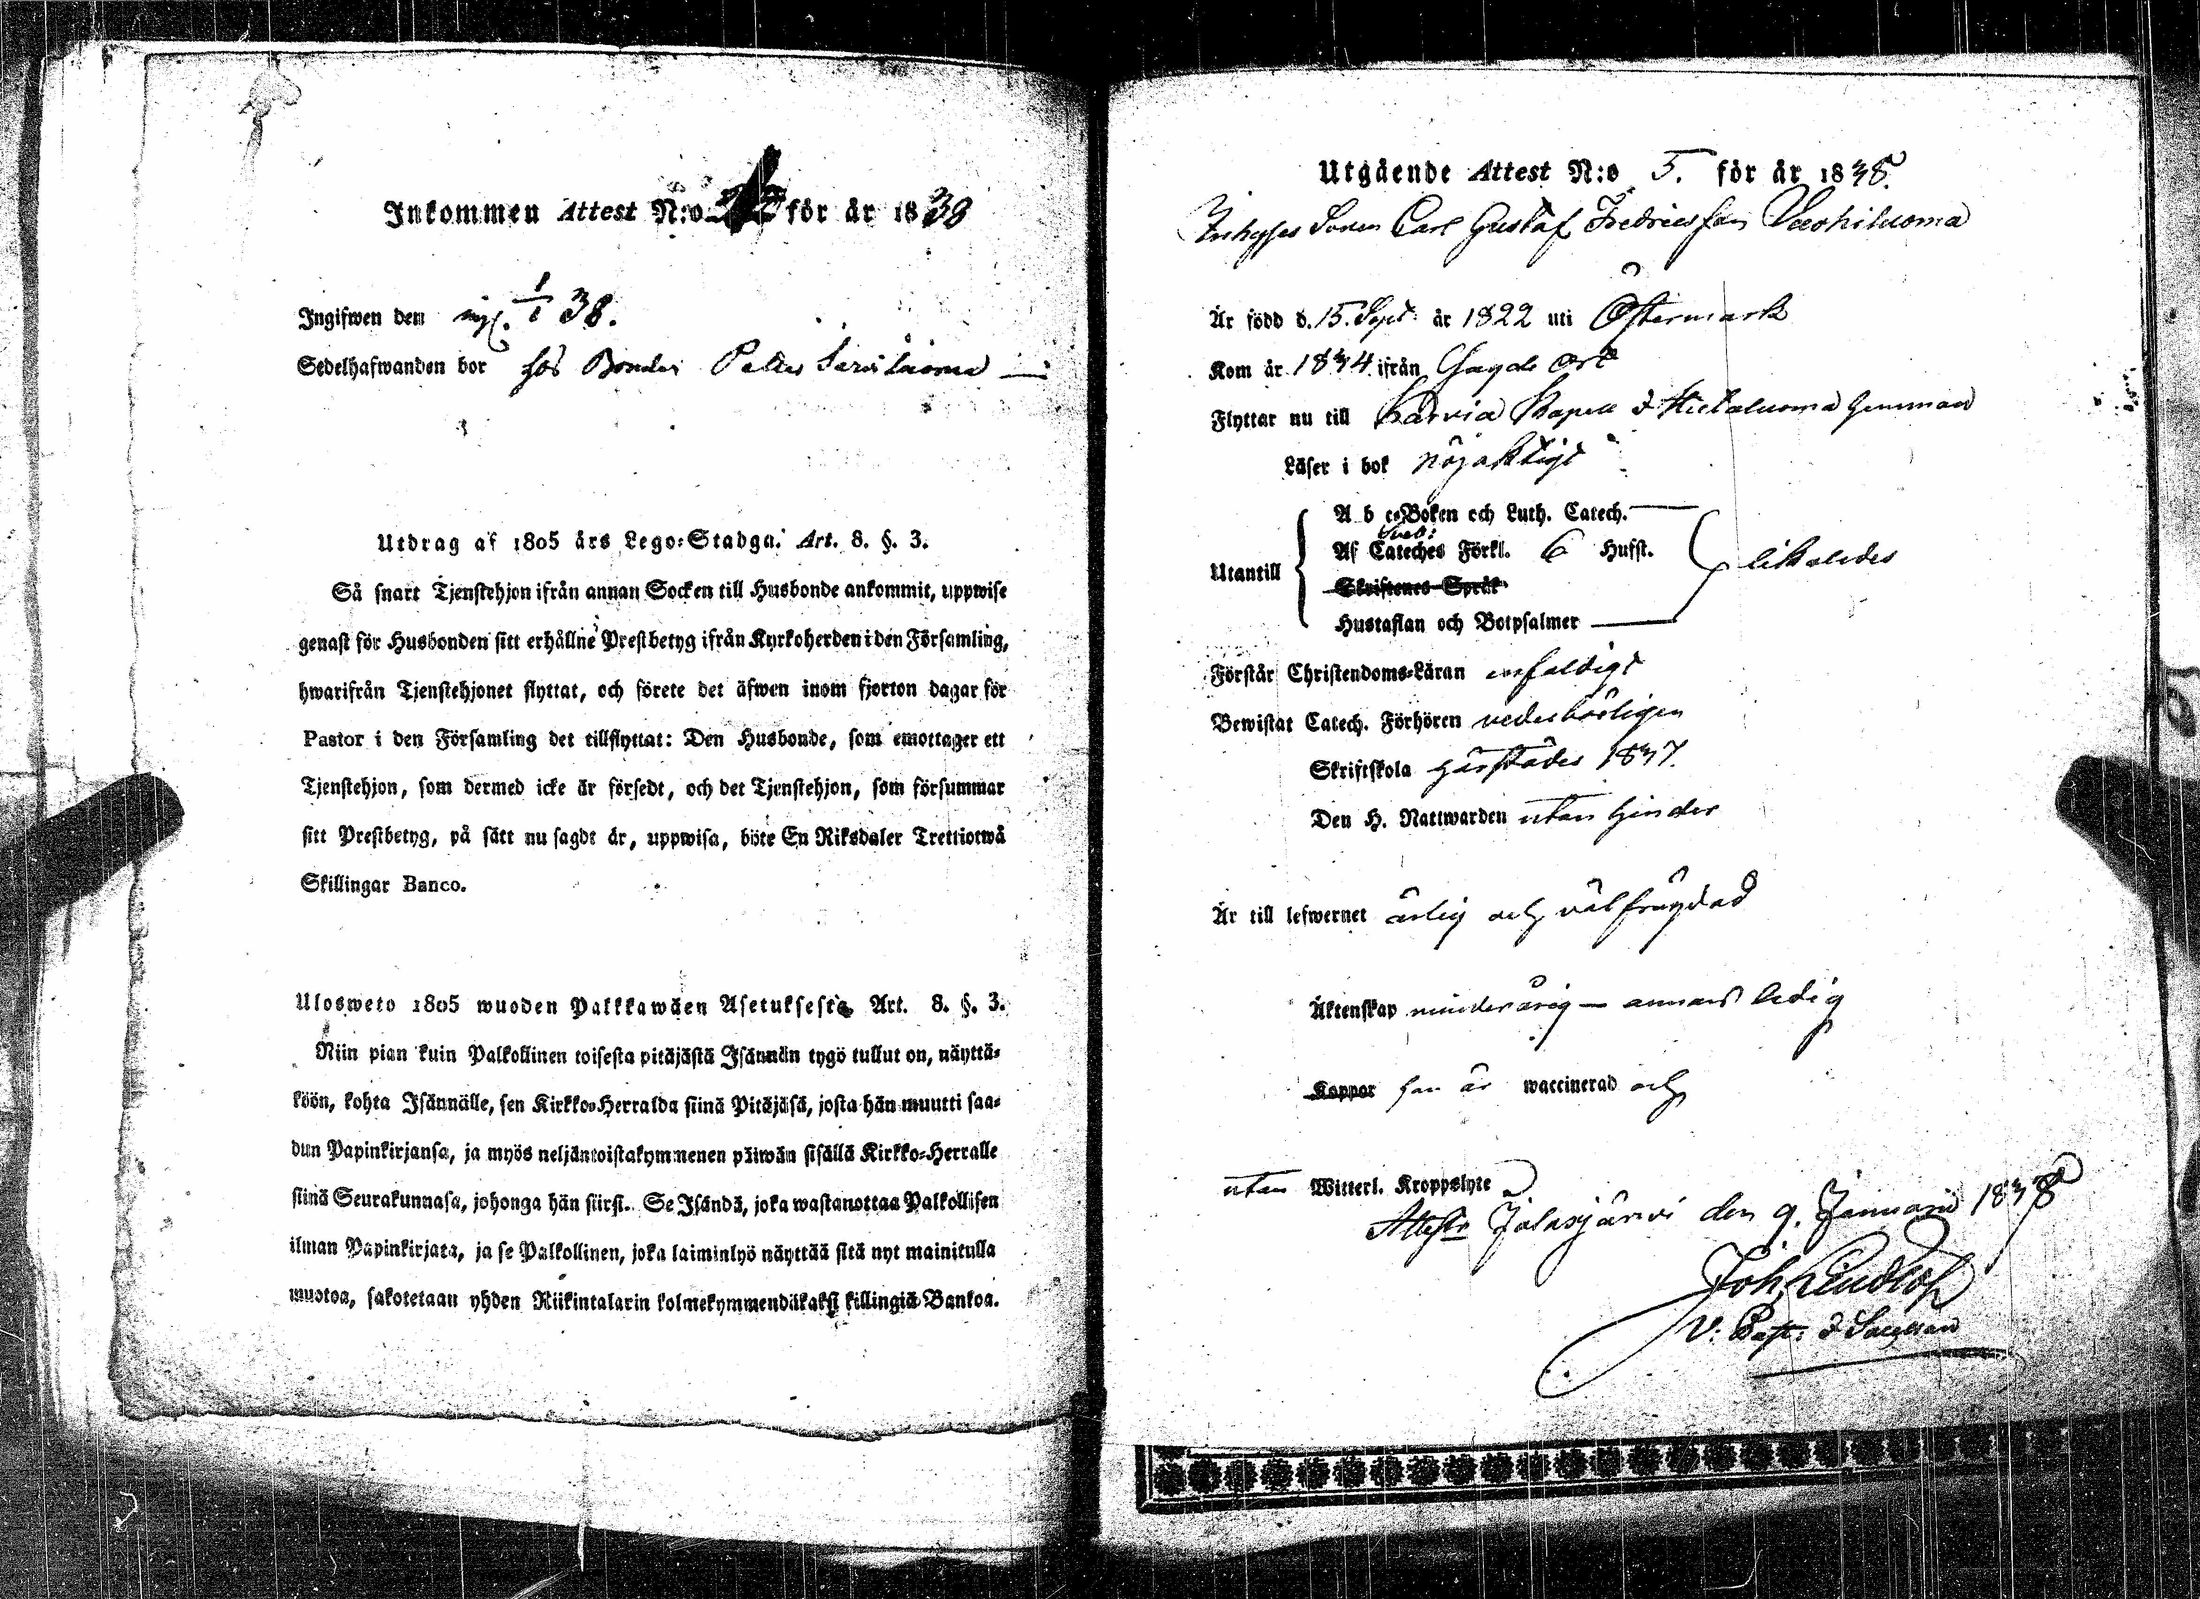 Inkommen Attest N:o för år 1838
Ingifwen den 1/1 38.
Sedelhafwanden bor hos Bonden
Utdrag af 1805 års Lego-Stadga. Art. 8. §. 3.
Så snart Tjenstehjon ifrån annan Socken till Husbonde ankommit, uppwise
genast för Husbonden sitt erhållne Prestbetyg ifrån Kyrkoherden i den Församling,
hwarifrån Tjenstehjonet flyttat, och förete det äfwen inom fjorton dagar för
Pastor i den Församling det tillflyttat: Den Husbonde, som emottager ett
Tjenstehjon, som dermed icke är försedt, och det Tjenstehjon, som försummar
sitt Prestbetyg, på sätt nu sagdt är, uppwisa, böte En Riksdaler Trettiotwå
Skillingar Banco.
Ulosweto 1805 wuoden Palkkawäen Asetuksesta Art. 8. §. 3.
Niin pian kuin Palkollinen toisesta pitäjästä Isännän tygö tullut on, näyttä-
köön, kohta Isännälle, sen Kirkko-Herralda siinä Pitäjäsä, josta hän muutti saa-
dun Papinkirjansa, ja myös neljäntoistakymmenen päiwän sisällä Kirkko-Herralle
siinä Seurakunnasa, johonga hän siirsi. Se Isändä, joka wastanottaa Palkollisen
ilman Papinkirjata, ja se Palkollinen, joka laiminlyö näyttää sitä nyt mainitulla
muotoa, sakotetaan yhden Riikintalarin kolmekymmendäkaksi killingiä Bankoa.
Utgående Attest N:o 5. för år 1838.
Inhyses Sonen Carl Gustaf Fredricsson
Är född d. 15. Sept. år 1822 uti Östermark
Kom år 1834 ifrån sagde ort
Flyttar nu till Karvia Kapell & Hietaluoma hemman
Läser i bok nöjaktigt
A b c-Boken och Luth. Catech.
Sveb:
Af Cateches Förkl. 6 Hufst.
Utantill likaledes
Skriftenes Språk
Hustaflan och Botpsalmer
Förstår Christendoms-Läran enfaldigt
Bewistat Catech. Förhören vederbörligen
Skriftskola härstädes 1837.
Den H. Nattwarden utan hinder
Är till lefwernet ärlig och välfrägdad
Äktenskap minderårig — annars ledig
Koppor han är waccinerad och
utan Witterl. Kroppslyte
Attest. Jalasjärvi den 9. Januarii 1838
Joh. Lindlöf
V: Past: & Sacellan